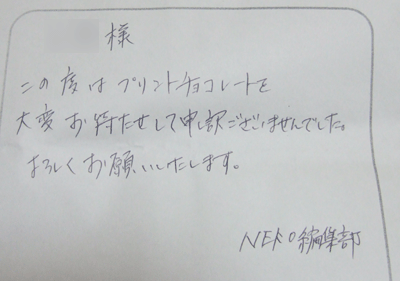 様
この度はプリントチョコレートを
大変お待たせして申し訳ございませんでした。
よろしくお願いいたします。
NEKO編集部